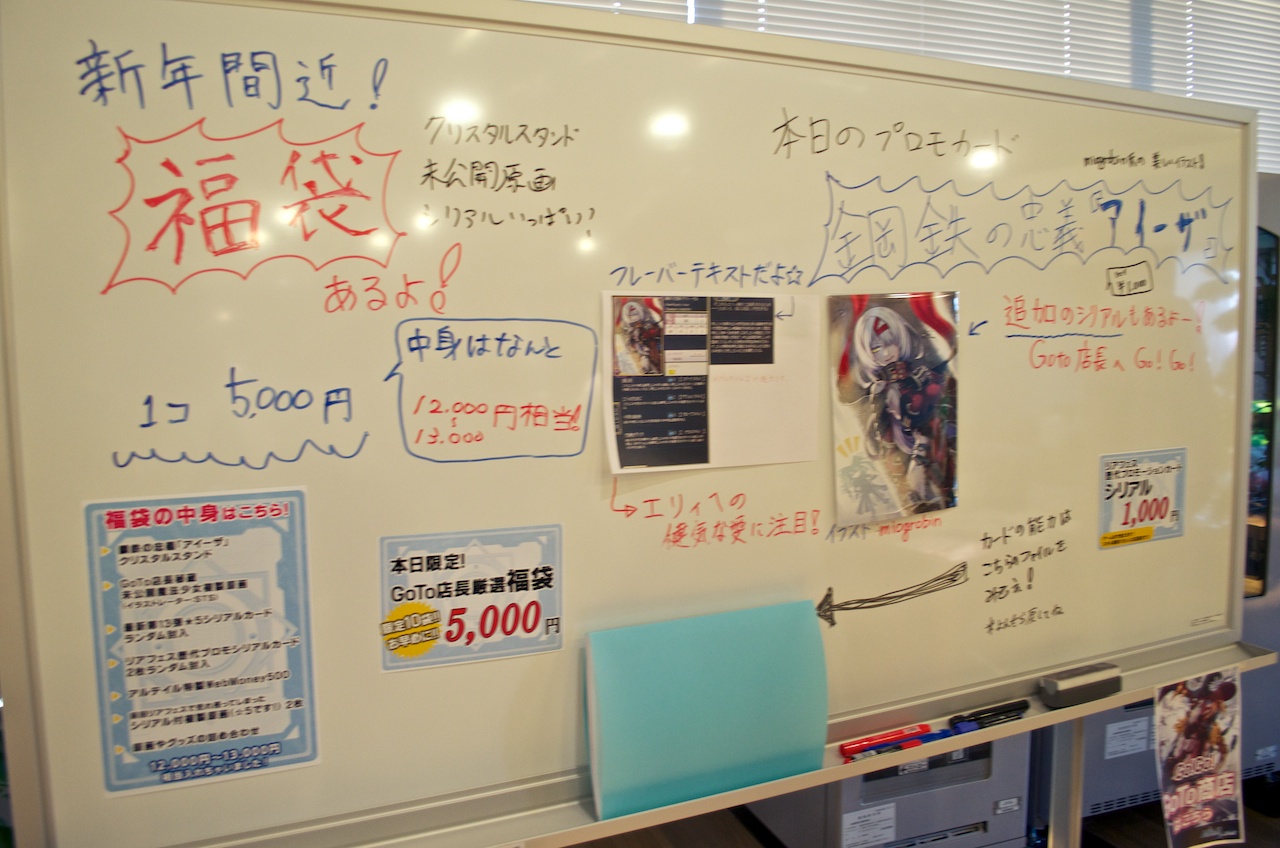 新年間近!
福袋
あるよ!
クリスタルスタンド
未公開原画
シリアルいっぱい!
1コ 5,000円
中身はなんと
12.000
13.000
円相当!
福袋の中身はこちら!
最新の忠義「アイーザ」
クリスタルスタンド
GoTo店長秘蔵
未公開魔法少女複製原画
(イラストレーター:STS)
最新第13弾★5シリアルカード
ランダム封入
リアフェス歴代プロモシリアルカード
2枚ランダム封入
アルテイル特製WebMoney500
シリアル付複製原画(☆5です!) 2枚
原画やグッズの詰め合わせ
12,000円~13,000円
相当入れちゃいました!
本日限定!
GoTo店長厳選福袋
限定10袋!!
お早めに!!
5,000円
フレーバーテキストだよ☆
エリィへの
健気な愛に注目!
本日のプロモカード
鋼鉄の忠義『アイーザ』
¥1,000
追加のシリアルもあるよー!
Goto店長へ Go! Go!
イラスト migrobin
リアフェス
歴代プロモーションカード
シリアル
1,000円
カードの能力は
こちらのファイルを
みてネ!
※よんだら戻してね
GO!GO!
GoTo商店